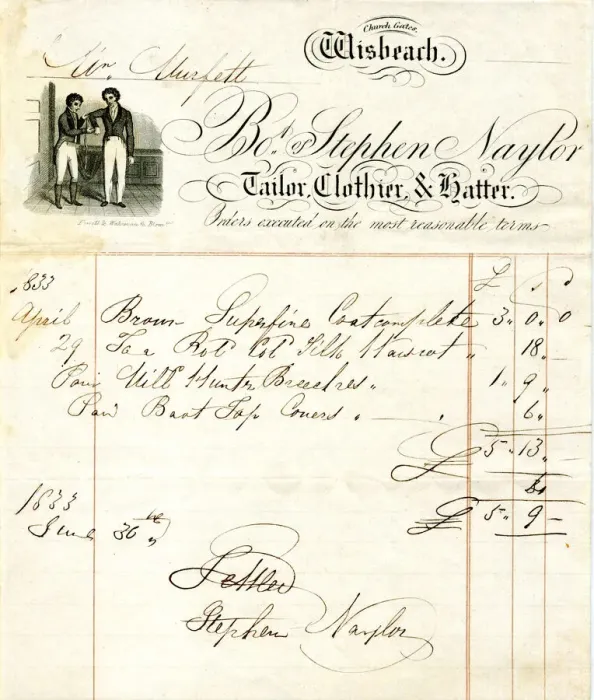 Church Gates,
Wisbeach.
Mr. Murfett
Bot. of Stephen Naylor
Tailor, Clothier, & Hatter.
Orders executed on the most reasonable terms
1833 £ s d
April Brown Superfine Coat complete 3 „ 0 „ 0
29 To a Silk „ 18 „
Pair Mill Hunts Breeches „ 1 „ 9 „
Pair Boot Top Covers „ 6 „
£ 5 „ 13 „
4
1833 £ 5 „ 9 –
June 30
Settled
Stephen Naylor